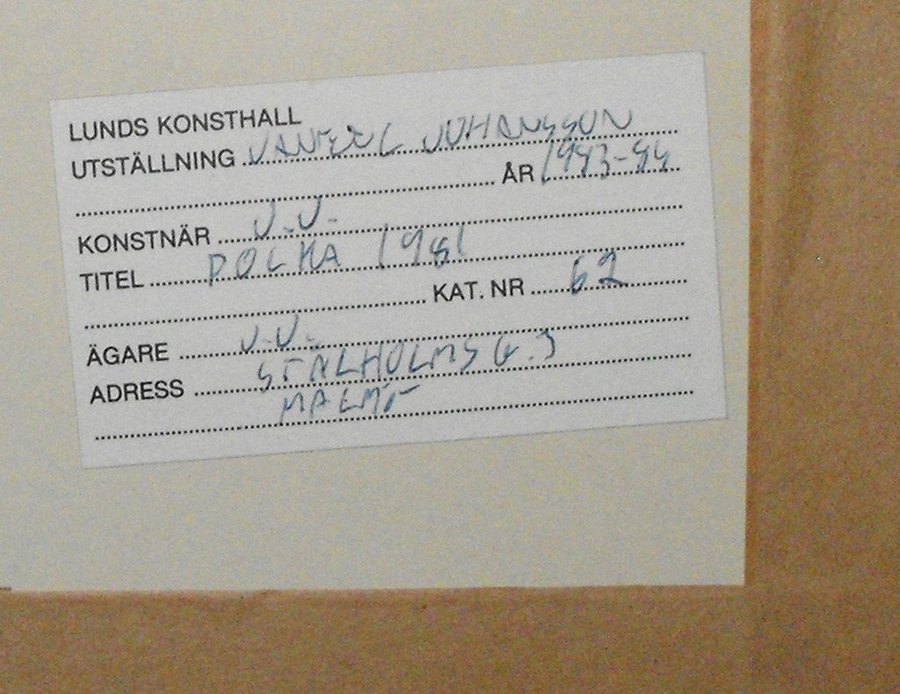 LUNDS KONSTHALL
UTSTÄLLNING JOHANSSON
ÅR 1983-84
KONSTNÄR J.J.
TITEL POLKA 1981
KAT. NR 62
ÄGARE J.J.
ADRESS STÅLHOLMSG.
MALMÖ